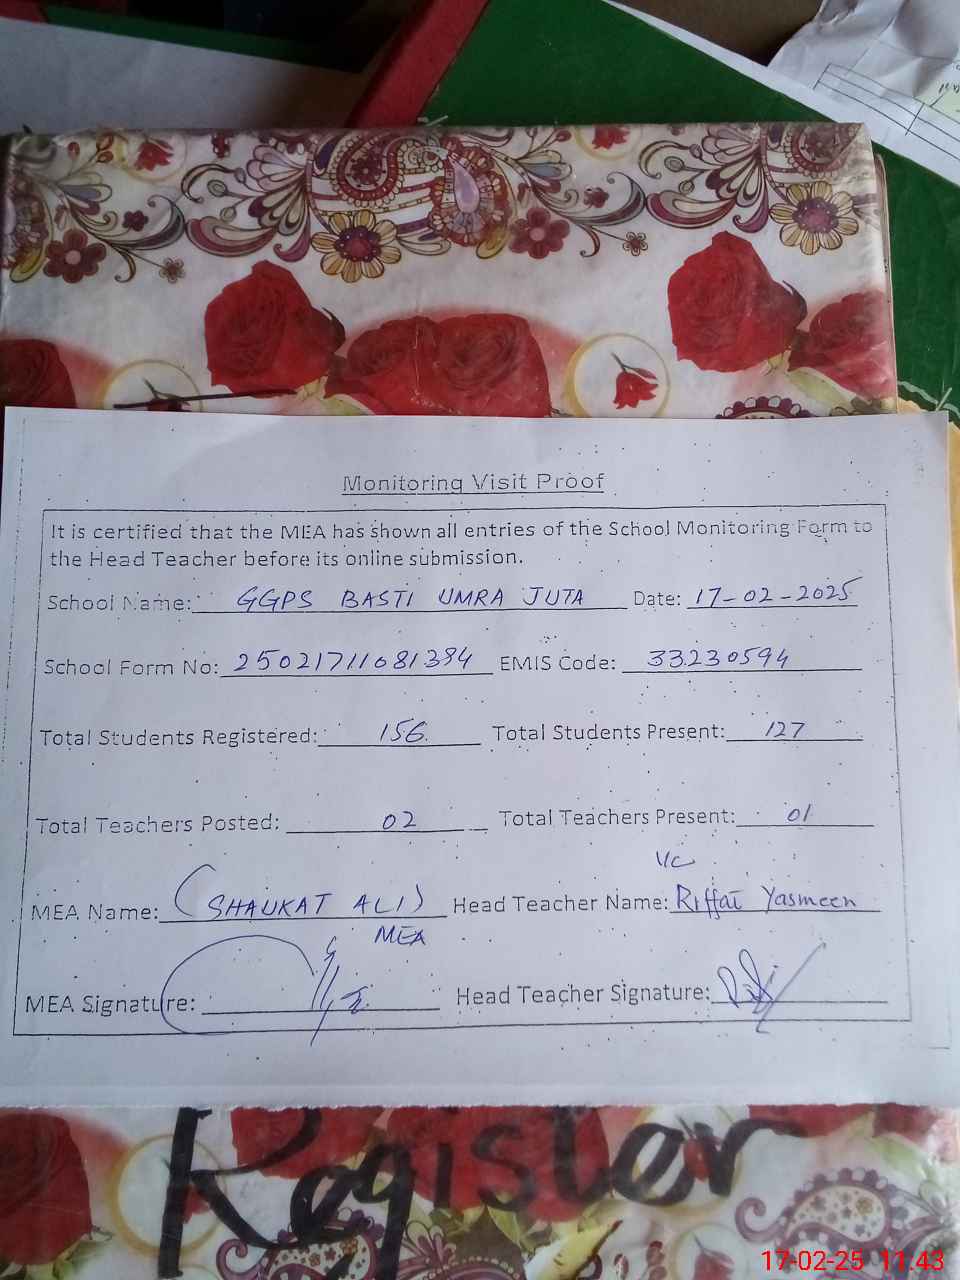 Monitoring Visit Proof
It is certified that the MEA has shown all entries of the School Monitoring Form to
the Head Teacher before its online submission.
School Name: GGPS BASTI UMRA JUTA Date: 17-02-2025
School Form No: 25021711081384 EMIS Code: 33230594
Total Students Registered: 156 Total Students Present: 127
Total Teachers Posted: 02 Total Teachers Present: 01
I/C
MEA Name: (SHAUKAT ALI) Head Teacher Name: Riffat Yasmeen
MEA
MEA Signature: Head Teacher Signature:
Register
17-02-25 11:43